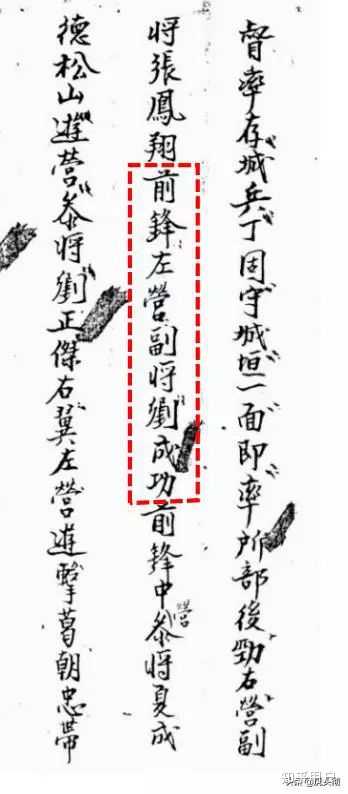 督率存城兵丁固守城垣一面即率所部後勁右營副
将張鳳翔前鋒左營副将劉成功前鋒中營叅将夏成
德松山遊營叅将劉正傑右翼左營遊擊葛朝忠帶